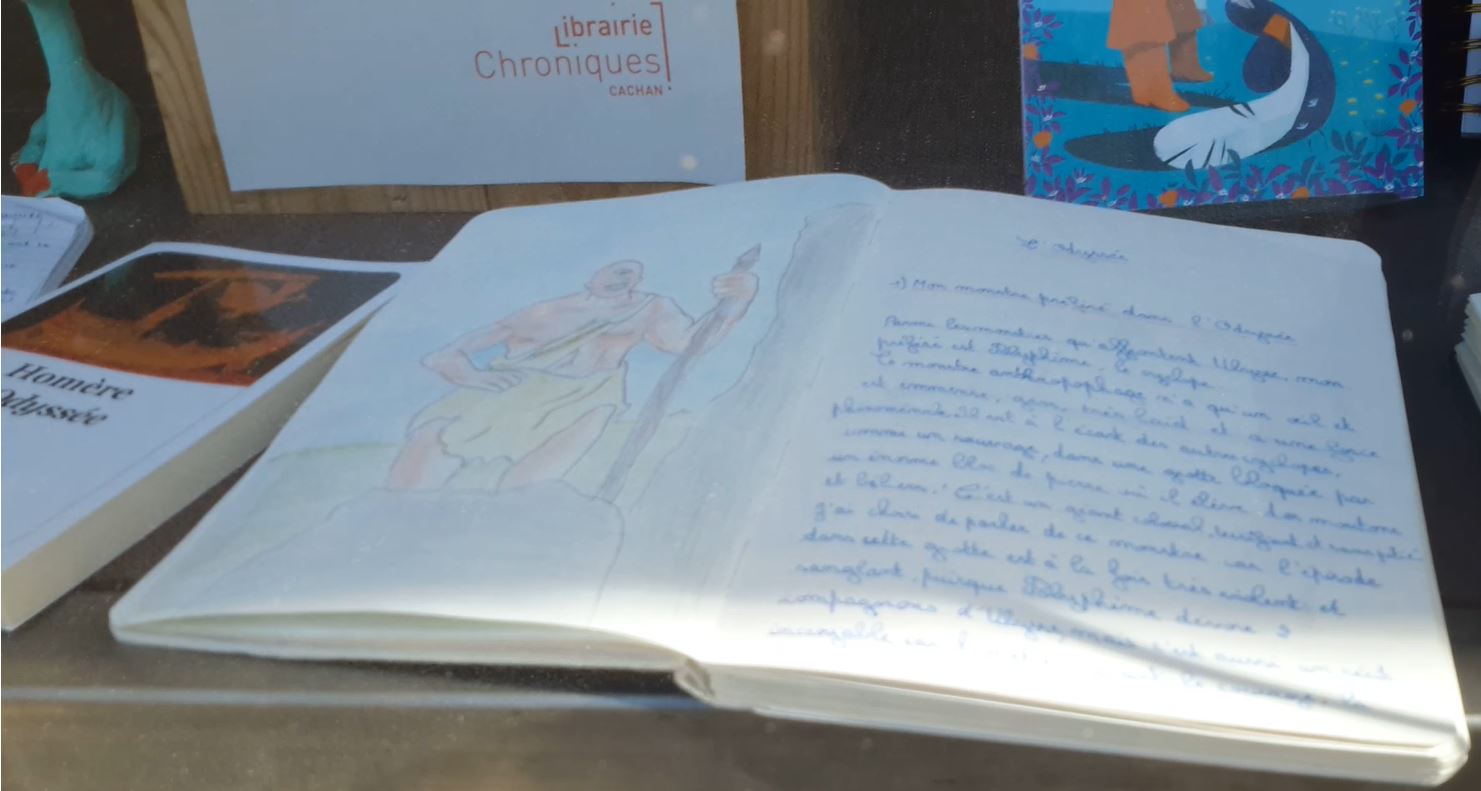 Librairie
Chroniques
CACHAN
Homère
Odyssée
L'Odyssée
1) Mon monstre préféré dans l'Odyssée
Parmi les monstres qu'affrontent Ulysse, mon
préféré est Polyphème, le cyclope.
Ce monstre anthropophage n'a qu'un œil et
est immense, gros, très laid et a une force
phénoménale. Il vit à l'écart des autres cyclopes,
comme un sauvage, dans une grotte bloquée par
un énorme bloc de pierre où il élève des moutons
et béliers. C'est un géant colossal, terrifiant et
J'ai choisi de parler de ce monstre car l'épisode
dans cette grotte est à la fois très violent et
sanglant, puisque Polyphème dévore
compagnons d'Ulysse, mais c'est aussi un récit
car